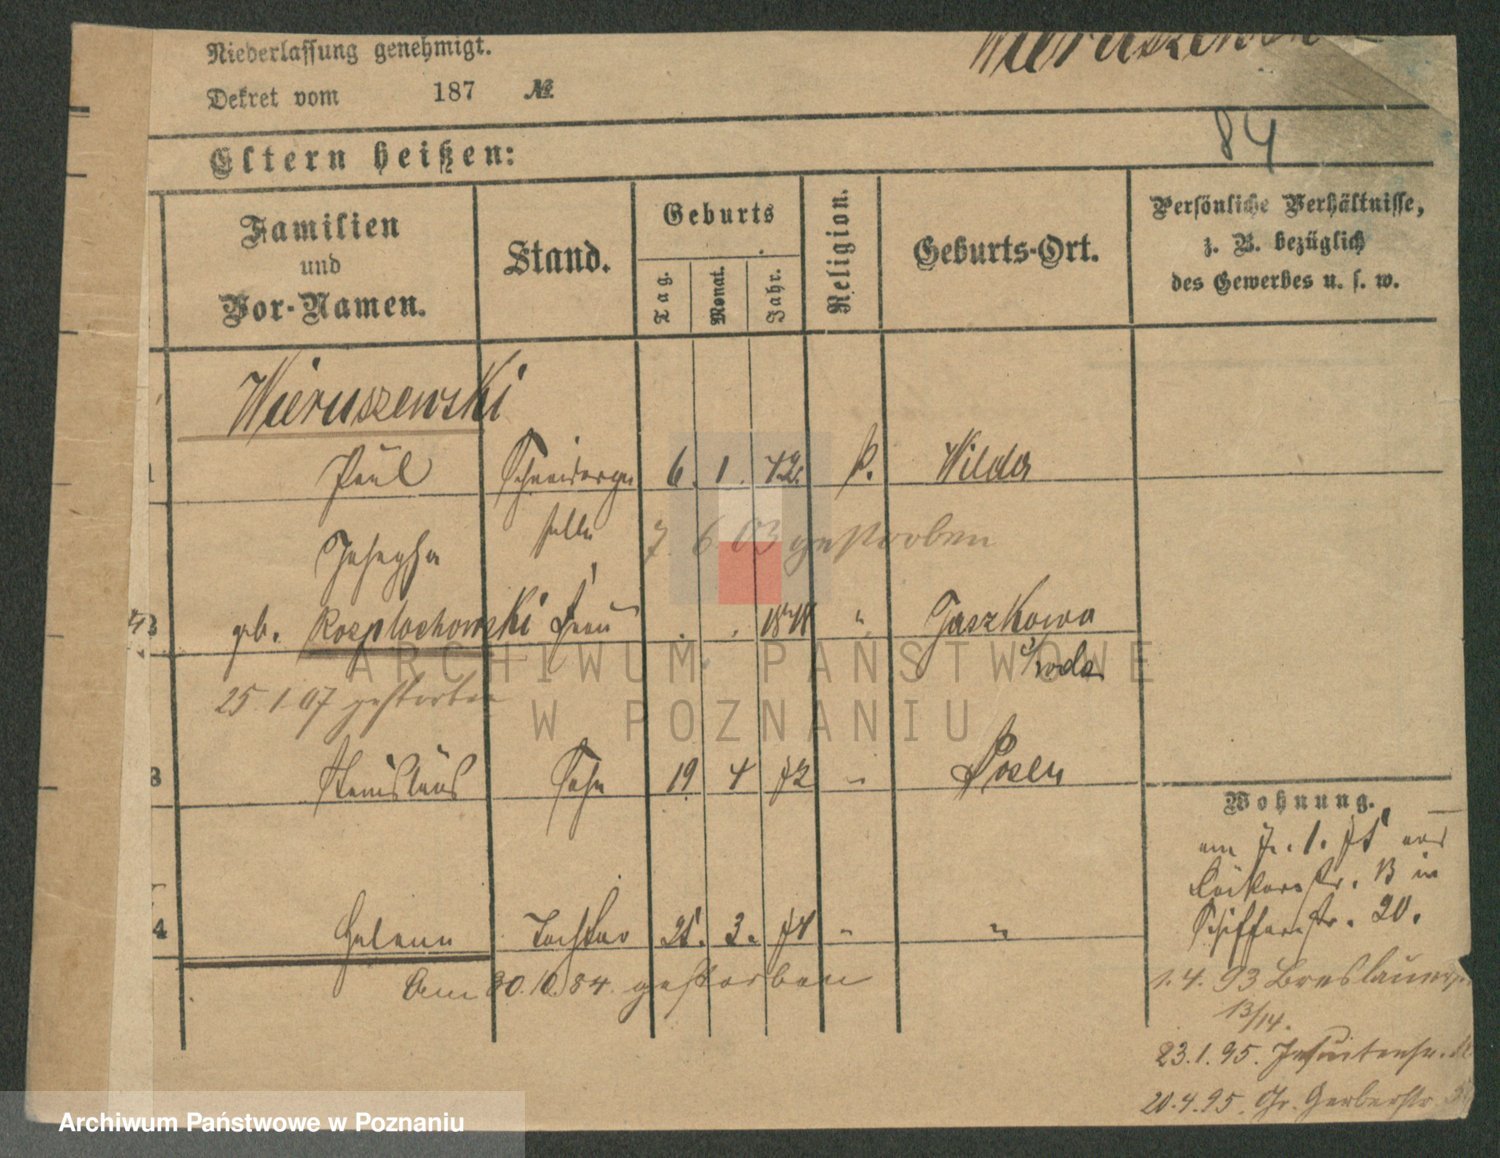 Niederlassung genehmigt.
Wieruszewski
Dekret vom 187 №
84
Eltern heißen:
Familien
und
Vor-Namen.
Stand.
Geburts
Tag.
Monat.
Jahr.
Religion.
Geburts-Ort.
Persönliche Verhältnisse,
z. B. bezüglich
des Gewerbes u. s. w.
Wieruszewski
Paul Schneiderge 6. 1. 42. k. Wilda
selle
7. 6. 03 gestorben
Josepha
geb. Rosplochowski Frau 1848 " Jaszkowo
Sroda
25.1.07 gestorben
3 Stanislaus Sohn 19 4 72 " Posen
4 Helena Tochter 3. 74 " "
Am 30.10.84. gestorben
Wohnung.
am 7. 1. aus
Bäckerstr. 13 in
Schifferstr. 20.
1.4.93 Breslauer
13/14.
23.1.95. Jesuitenstr.
20.4.95. Gr. Gerberstr
ARCHIWUM PAŃSTWOWE
W POZNANIU
Archiwum Państwowe w Poznaniu